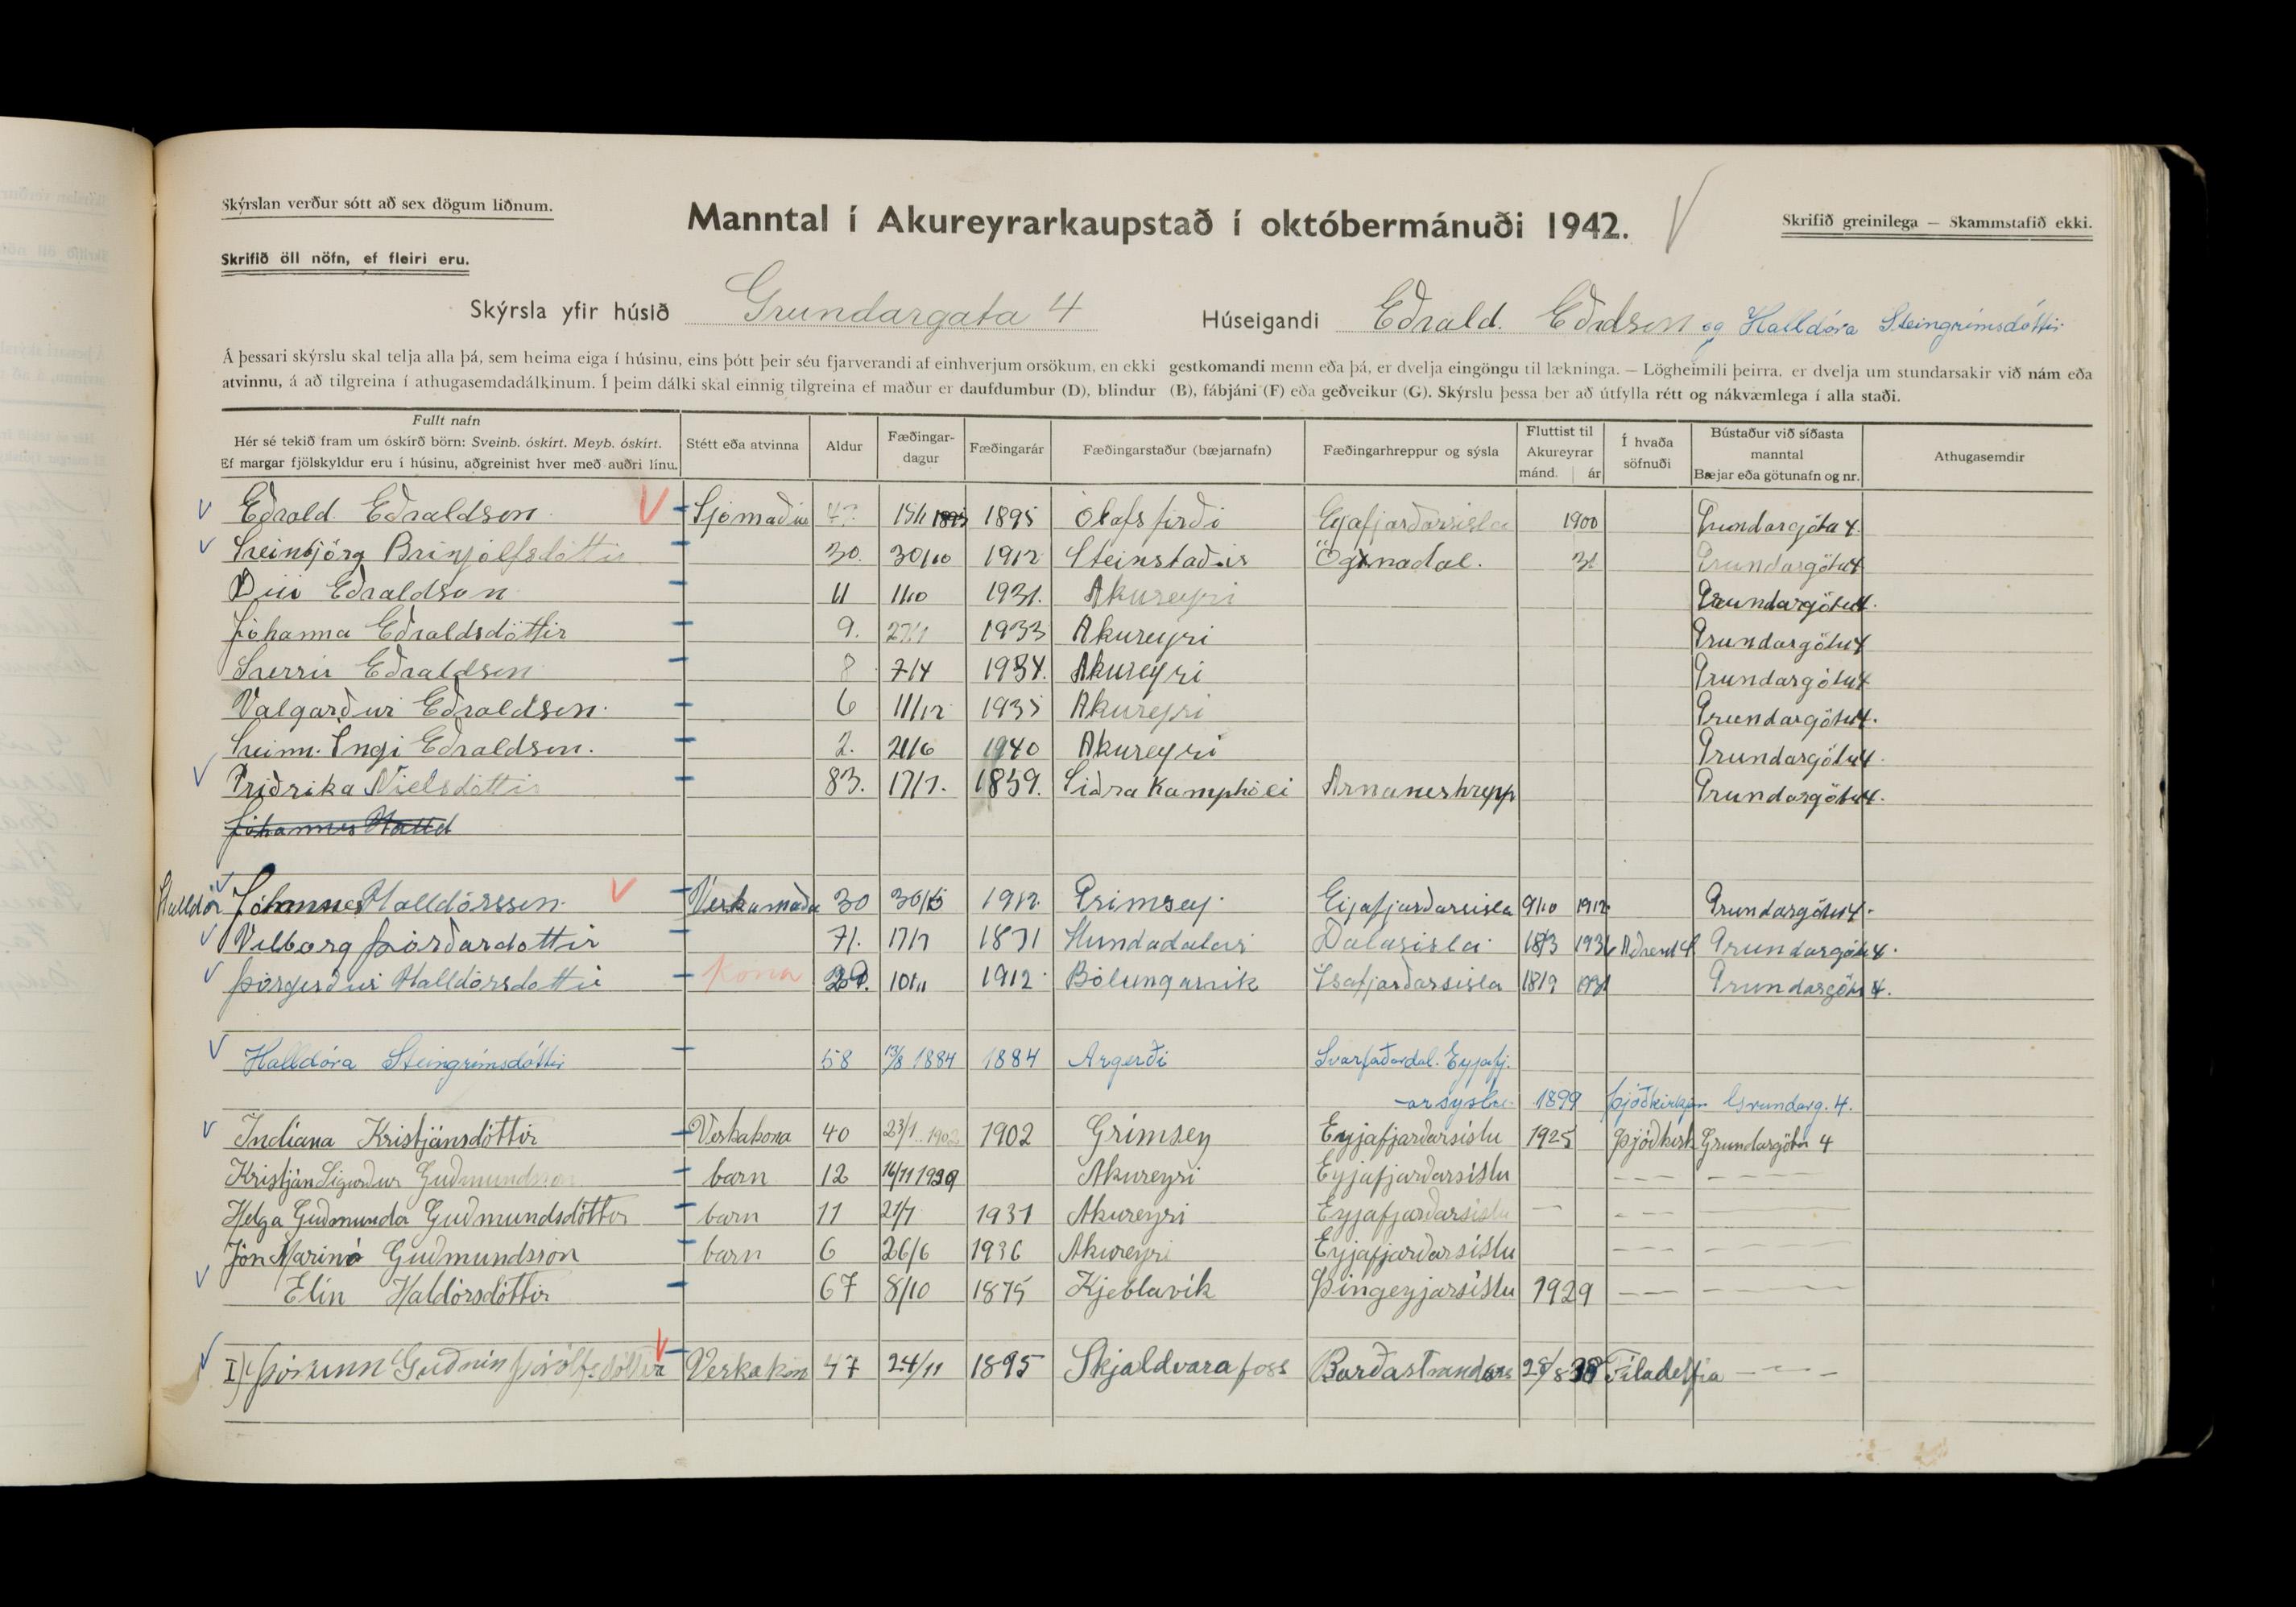 Skýrslan verður sótt að sex dögum liðnum.
Manntal í Akureyrarkaupstað í októbermánuði 1942.
Skrifið greinilega — Skammstafið ekki.
Skrifið öll nöfn, ef fleiri eru.
Skýrsla yfir húsið Grundargata 4 Húseigandi Eðvald. Eðvaldsson og Halldóra Steingrímsdóttir
Á þessari skýrslu skal telja alla þá, sem heima eiga í húsinu, eins þótt þeir séu fjarverandi af einhverjum orsökum, en ekki gestkomandi menn eða þá, er dvelja eingöngu til lækninga. — Lögheimili þeirra, er dvelja um stundarsakir við nám eða
atvinnu, á að tilgreina í athugasemdadálkinum. Í þeim dálki skal einnig tilgreina ef maður er daufdumbur (D), blindur (B), fábjáni (F) eða geðveikur (G). Skýrslu þessa ber að útfylla rétt og nákvæmlega í alla staði.
Fullt nafn
Hér sé tekið fram um óskírð börn: Sveinb. óskírt. Meyb. óskírt.
Ef margar fjölskyldur eru í húsinu, aðgreinist hver með auðri línu.
Stétt eða atvinna
Aldur
Fæðingar-
dagur
Fæðingarár
Fæðingarstaður (bæjarnafn)
Fæðingarhreppur og sýsla
Fluttist til
Akureyrar
mánd. ár
Í hvaða
söfnuði
Bústaður við síðasta
manntal
Bæjar eða götunafn og nr.
Athugasemdir
Eðvald Eðvaldsson Sjómaður 1895 Ólafsfirði Eyjafjarðarsísla 1900 Grundargöta 4.
Steinbjörg Brinjólfsdóttir 30. 30/10 1912 Steinstaðir Ögxnadal. 31 Grundargötu 4
Eðvaldson 11 1/10 1931. Akureyri Grundargötu 4.
Jóhanna Eðvaldsdóttir 9. 1933 Akureyri Grundargötu 4
Sverrir Eðvaldson 8 7/4 1934. Akureyri Grundargötu 4
Valgarður Eðvaldson. 6 11/12 1935 Akureyri Grundargötu 4.
Ingi Eðvaldson. 2. 21/6 1940 Akureyri Grundargötu 4.
Friðrika Nielsdóttir 83. 17/7. 1859. Arnaneshrepp Grundargötu 4.
Jóhannes Halld
Halldór Jóhannes Halldórsson. Verkamaður 30 1912. Grimsey. Eyjafjarðarsisla 9/10 1912 Grundargötu 4.
Vilborg Þórðardottir 71. 17/7 1871 Hundadalur Dalasisla. 18/3 1931 Aðvent Grundargötu 4.
Þorgerður Halldórsdottir kona 29. 10/11 1912. Bolungarvik Ísafjarðarsisla 18/9 1931 Grundargötu 4.
Halldóra Steingrímsdóttir 58 13/8 1884 1884 Argerði Svarfaðardal. Eyjafj.
-arsýslu 1899 þjóðkirkjan Grundarg. 4.
Indíana Kristjánsdóttir Verkakona 40 23/1 1902 1902 Grímsey Eyjafjarðarsíslu 1925 Þjóðkirk Grundargötu 4
Kristján Sigurður Guðmundsson barn 12 16/11 1929 Akureyri Eyjafjarðarsíslu — — — — — —
Helga Guðmunda Guðmundsdóttir barn 11 21/7 1931 Akureyri Eyjafjarðarsíslu — — — — — —
Jón Marinó Guðmundsson barn 6 26/6 1936 Akureyri Eyjafjarðarsíslu — — — — — —
Elín Haldórsdóttir 67 8/10 1875 Kjeblavík Þingeyjarsíslu 1929 — — — — —
I) Þórunn Guðrún Þórólfsdóttir Verkakon 47 24/11 1895 Skjaldvarafoss Barðastrandars 28/8 38 Filadelfia — — —